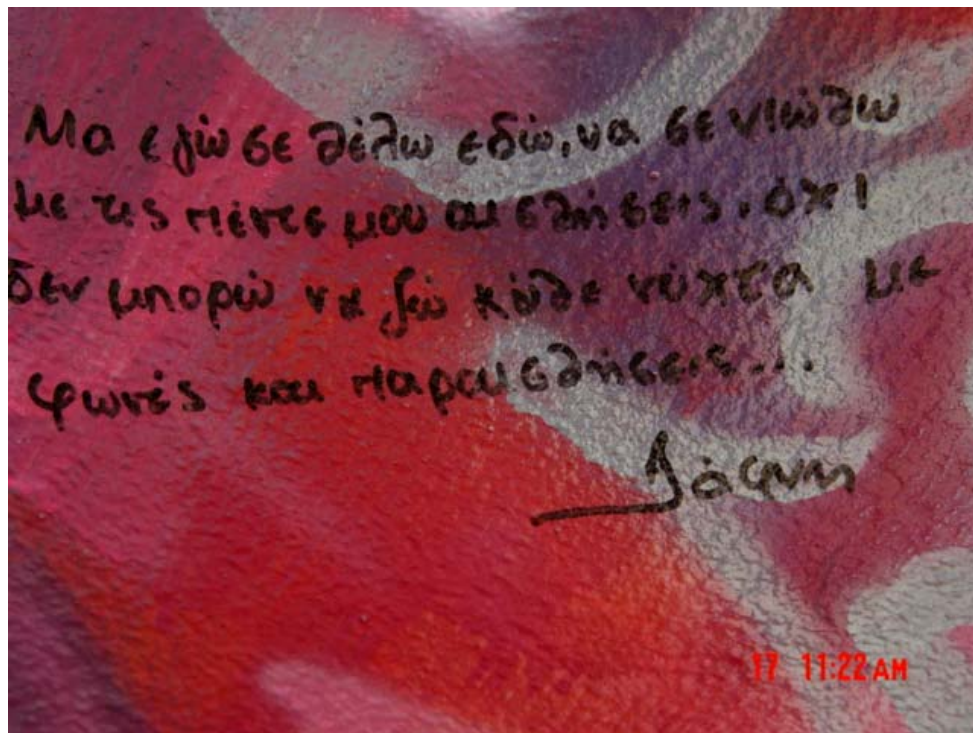 Μα εγώ σε θέλω εδώ, να σε νιώθω
με τις πέντε μου αισθήσεις. όχι
δεν μπορώ να ζω κάθε νύχτα με
φωνές και παραισθήσεις...
Δάφνη
17 11:22 AM